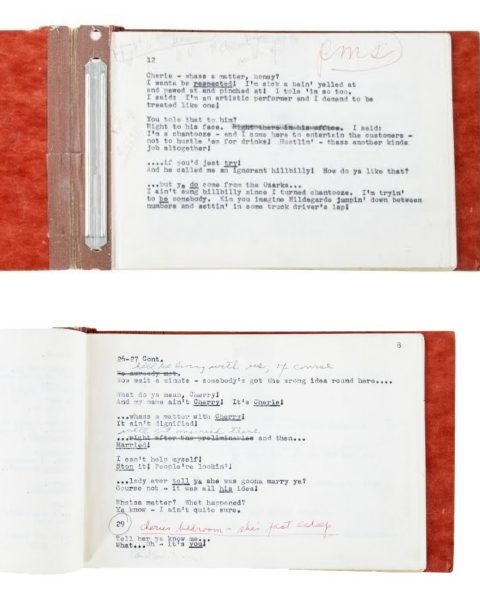 ems
12
Cherie - whass a matter, honey?
I wanta be respected! I'm sick a bein' yelled at
and pawed at and pinched at! I tole 'im so too.
I said: I'm an artistic performer and I demand to be
treated like one!
You tole that to him?
Right to his face. Right there in his office. I said:
I'm a chantooze - and I come here to entertain the customers -
not to hustle 'em for drinks! Hustlin' - thass another kinda
job altogether!
....if you'd jest try!
And he called me an ignorant hillbilly! How do ya like that?
...but ya do come from the Ozarks...
I ain't sung hillbilly since I turned chantooze. I'm tryin'
to be somebody. Kin you imagine Hildegarde jumpin' down between
numbers and settin' in some truck driver's lap!
8
26-27 Cont.
be away with us, of course
Now wait a minute - somebody's got the wrong idea round here....
What do ya mean, Cherry!
And my name ain't Cherry! It's Cherie!
...whass a matter with Cherry!
It ain't dignified!
get married there
...right after the preliminaries and then...
Married!
I can't help myself!
Stop it! People're lookin'!
...lady ever tell ya she was goona marry ya?
Course not - it was all his idea!
Whatss matter? What happened?
Ya know - I ain't quite sure.
29 cheries bedroom - she's fast asleep
Tell her ya know me...
What...Oh - it's you!